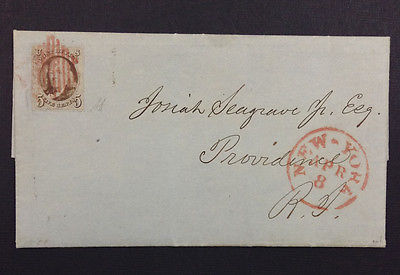 5 5
Josiah Seagrave Jr. Esq.
Providence
R. I.
NEW-YORK
APR
8